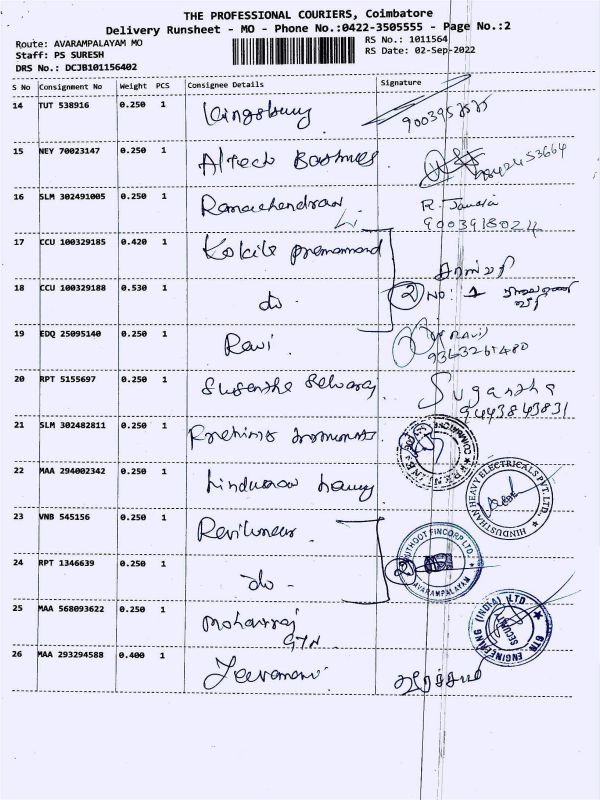 THE PROFESSIONAL COURIERS, Coimbatore
Delivery Runsheet - MO - Phone No.:0422-3505555 - Page No.:2
Route: AVARAMPALAYAM MO
RS No.: 1011564
Staff: PS SURESH
RS Date: 02-Sep-2022
DRS No.: DCJB101156402
S No Consignment No Weight PCS Consignee Details Signature
14 TUT 538916 0.250 1 Kingsbury
15 NEY 70023147 0.250 1
16 SLM 302491005 0.250 1 Ramachandran R.
9003918024
17 CCU 100329185 0.420 1 Kokila premanand
18 CCU 100329188 0.530 1 do. 2 NO: 1
19 EDQ 25095140 0.250 1 Ravi. RAVI
9363261480
20 RPT 5155697 0.250 1 Sugantha
9443843831
21 SLM 302482811 0.250 1
22 MAA 294002342 0.250 1
HINDUSTHAN HEAVY ELECTRICALS PVT. LTD.,
23 VNB 545156 0.250 1
MUTHOOT FINCORP LTD
AVARAMPALAYAM
24 RPT 1346639 0.250 1 do - 2
25 MAA 568093622 0.250 1 mohanraj
GTN
GTN. ENGINEERING (INDIA) LTD
SECURITY
26 MAA 293294588 0.400 1 Jeevamani